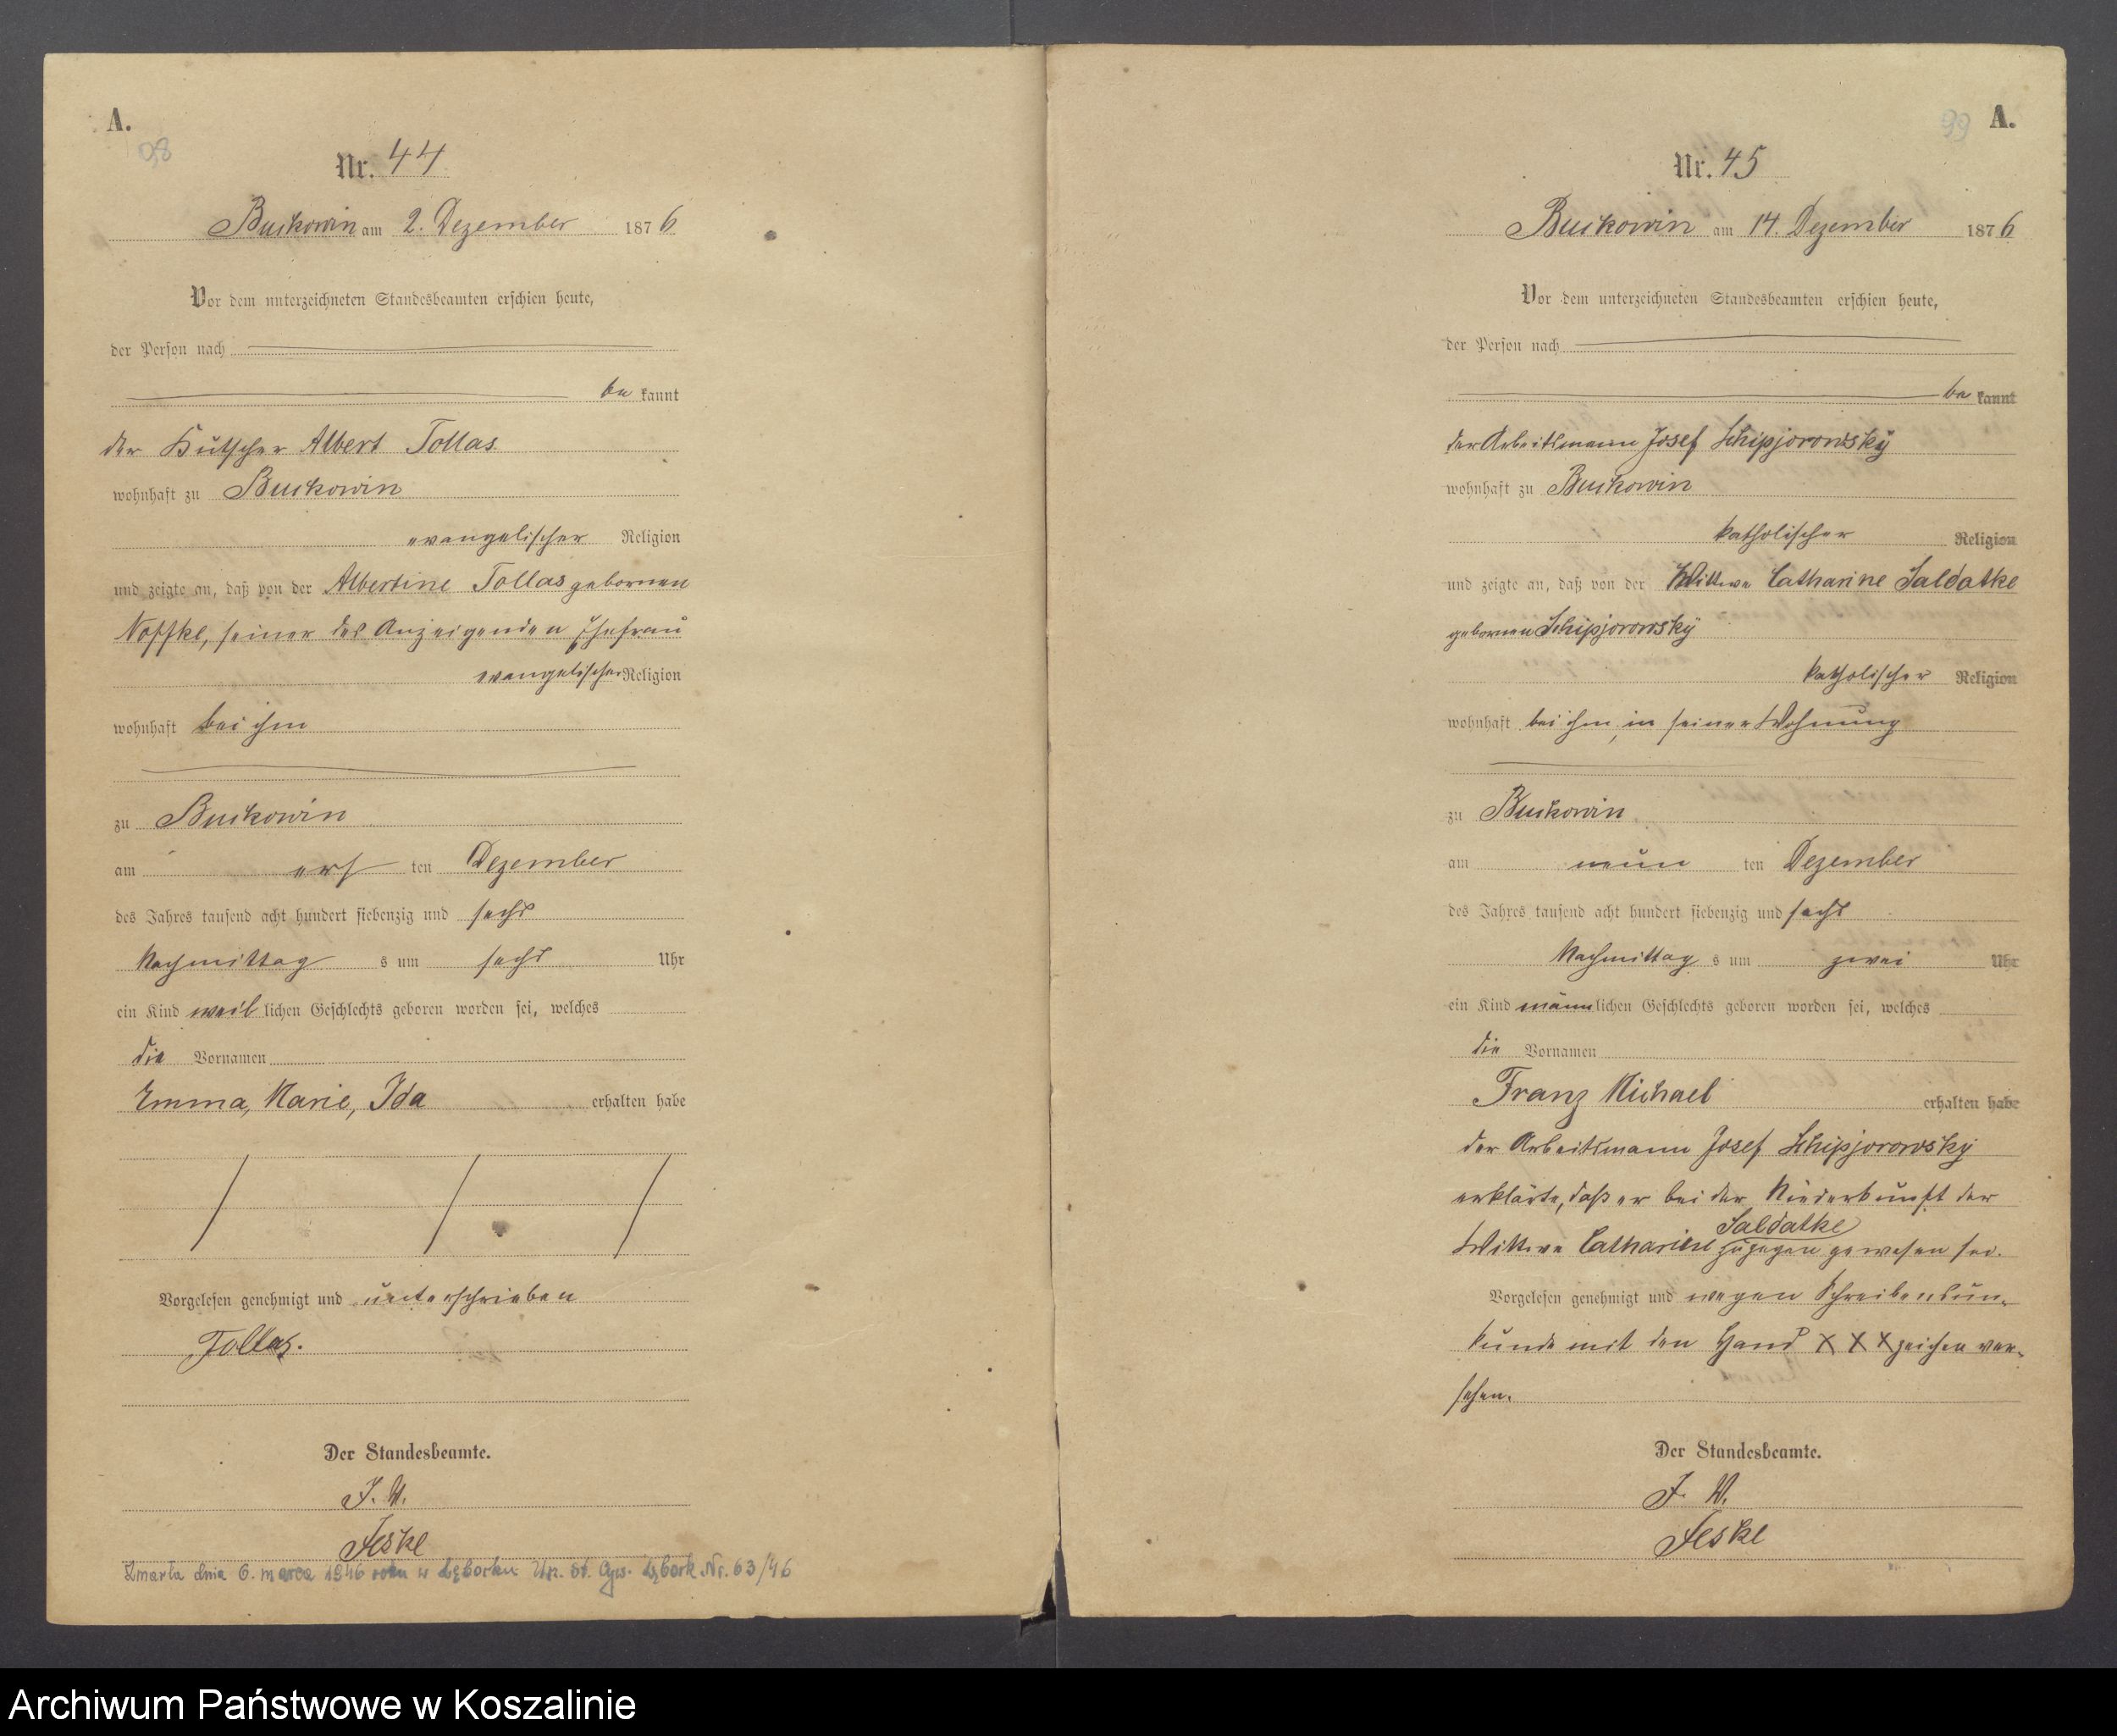 A.
98
Nr. 44
Buckowin am 2. Dezember 1876
Vor dem unterzeichneten Standesbeamten erschien heute,
der Person nach
be kannt
der Kutscher Albert Tollas
wohnhaft zu Buckowin
evangelischer Religion
und zeigte an, daß von der Albertine Tollas gebornen
Noffke, seiner des Anzeigenden Ehefrau
evangelischer Religion
wohnhaft bei ihm
zu Buckowin
am ers ten Dezember
des Jahres tausend acht hundert siebenzig und sechs
Nachmittag s um sechs Uhr
ein Kind weib lichen Geschlechts geboren worden sei, welches
die Vornamen
Emma, Marie, Ida erhalten habe
Vorgelesen genehmigt und unterschrieben
Tollas.
Der Standesbeamte.
J. V.
Jeske
Zmarła dnia 6. marca 1946 roku w Lęborku Urz. St. Cyw. Lębork Nr. 63/46
99
A.
Nr. 45
Buckowin am 14. Dezember 1876
Vor dem unterzeichneten Standesbeamten erschien heute,
der Person nach
be kannt
der Arbeitsmann Josef Schipjorowsky
wohnhaft zu Buckowin
katholischer Religion
und zeigte an, daß von der Wittwe Catharine Saldatke
gebornen Schipjorowsky
katholischer Religion
wohnhaft bei ihm, in seiner Wohnung
zu Buckowin
am neun ten Dezember
des Jahres tausend acht hundert siebenzig und sechs
Nachmittag s um zwei Uhr
ein Kind männ lichen Geschlechts geboren worden sei, welches
die Vornamen
Franz Michael erhalten habe
der Arbeitsmann Josef Schipjorowsky
erklärte, daß er bei der Niederkunft der
Saldatke
Wittwe Catharine zugegen gewesen sei.
Vorgelesen genehmigt und wegen Schreibensun-
kunde mit den Hand X X X zeichen ver-
sehen.
Der Standesbeamte.
J. V.
Jeske
Archiwum Państwowe w Koszalinie